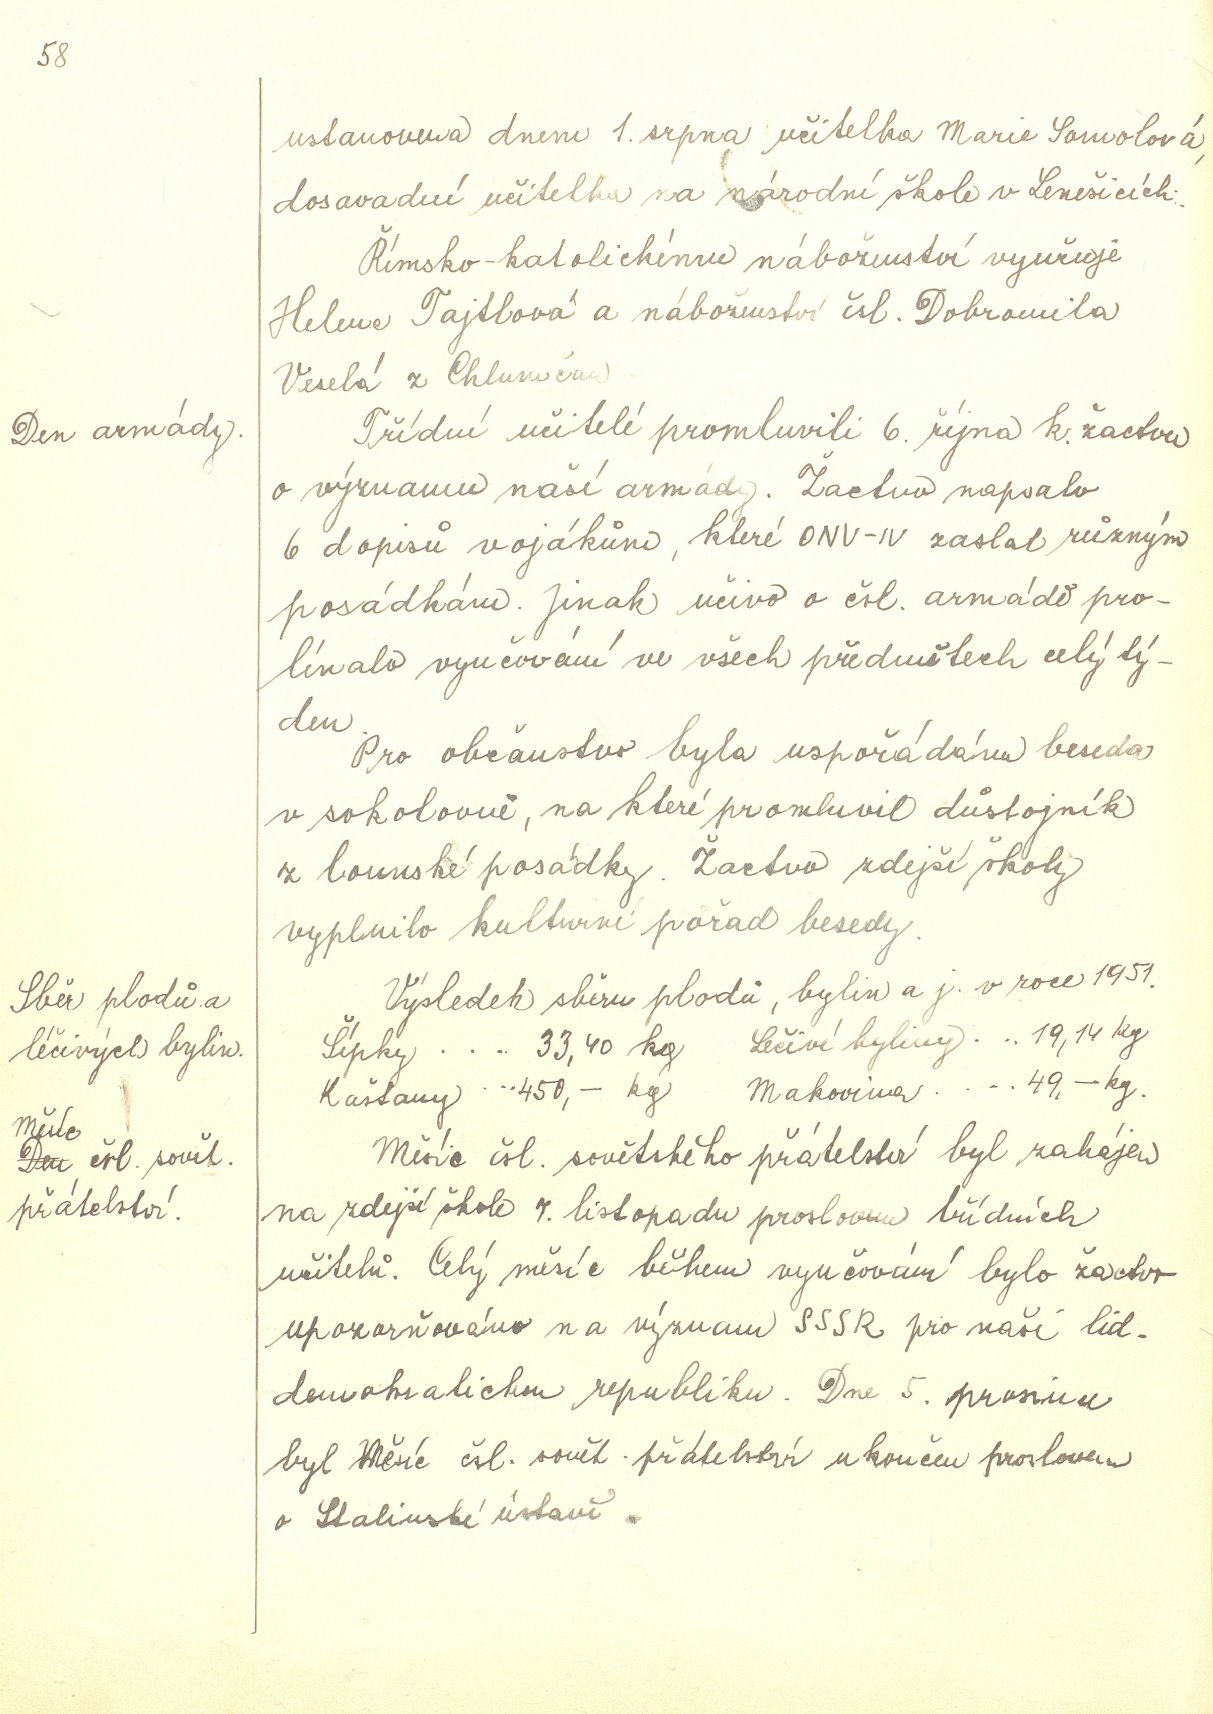 58
ustanovena dnem 1. srpna učitelka Marie Somolová,
dosavadní učitelka na národní škole v Lenešicích.
Římsko-katolickému náboženství vyučuje
Helena Tajtlová a náboženství čsl. Dobromila
Veselá z Chlumčan.
Den armády.
Třídní učitelé promluvili 6. října k žactvu
o významu naší armády. Žactvo napsalo
6 dopisů vojákům, které ONV-IV zaslal různým
posádkám. Jinak učivo o čsl. armádě pro-
línalo vyučování ve všech předmětech celý tý-
den.
Pro občanstvo byla uspořádána beseda
v sokolovně, na které promluvil důstojník
z lounské posádky. Žactvo zdejší školy
vyplnilo kulturní pořad besedy.
Sběr plodů a
léčivých bylin.
Výsledek sběru plodů, bylin a j. v roce 1951.
Šípky .... 33,40 kg Léčivé byliny ... 19,14 kg
Kaštany ...450,- kg Makovina .... 49,- kg.
Měsíc
Den čsl. sovět.
přátelství.
Měsíc čsl. sovětského přátelství byl zahájen
na zdejší škole 7. listopadu proslovem třídních
učitelů. Celý měsíc během vyučování bylo žactvo
upozorňováno na význam SSSR pro naši lid.
demokratickou republiku. Dne 5. prosince
byl Měsíc čsl. sovět. přátelství ukončen proslovem
o Stalinské ústavě.